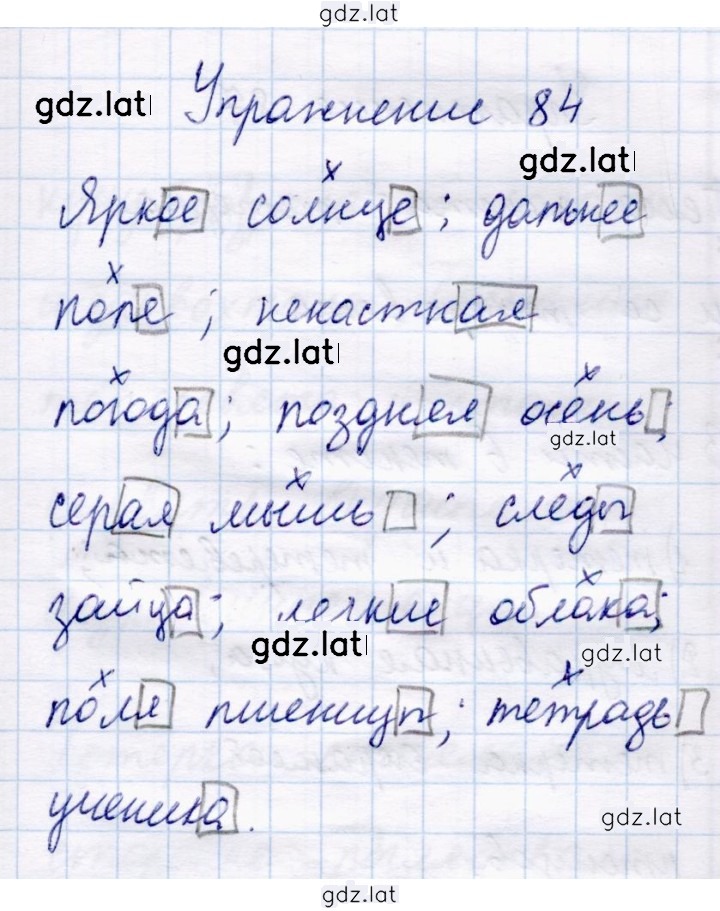 gdz.lat
gdz.lat
Упражнение 84
gdz.lat
Яркое солнце; дальнее
поле; ненастная
gdz.lat
погода; поздняя осень;
gdz.lat
серая мышь; следы
зайца; легкие облака;
gdz.lat
gdz.lat
поля пшеницы; тетрадь
ученика.
gdz.lat
gdz.lat